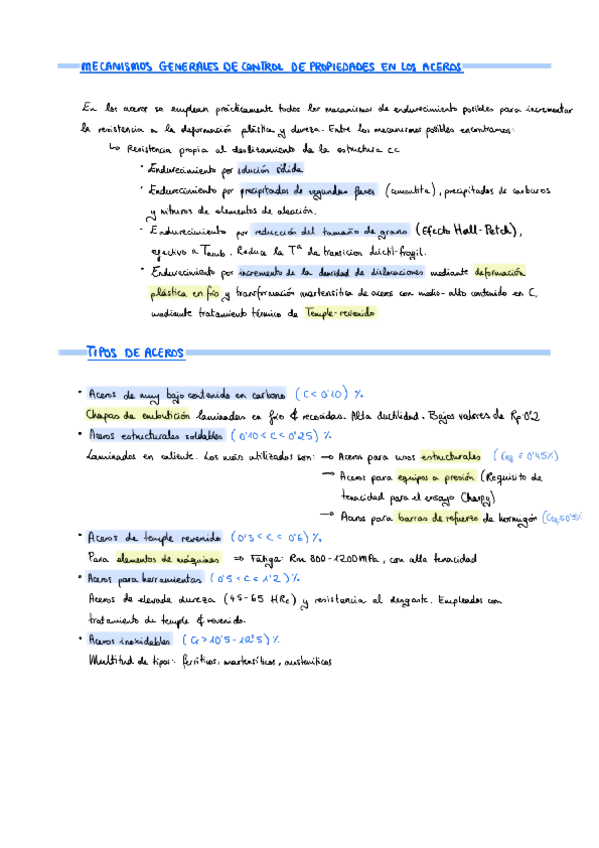 MECANISMOS GENERALES DE CONTROL DE PROPIEDADES EN LOS ACEROS
En los aceros se emplean prácticamente todos los mecanismos de endurecimiento posibles para incrementar
la resistencia a la deformación plástica y dureza. Entre los mecanismos posibles encontramos:
↳ Resistencia propia al deslizamiento de la estructura CC
· Endurecimiento por solución sólida
· Endurecimiento por precipitados de segundas fases (cementita), precipitados de carburos
y nitruros de elementos de aleación.
- Endurecimiento por reducción del tamaño de grano (Efecto Hall-Petch),
efectivo a Tamb. Reduce la Tª de transicion dúctil-fragil.
· Endurecimiento por incremento de la densidad de dislocaciones mediante deformación
plástica en frío y transformación martensítica de aceros con medio-alto contenido en C,
mediante tratamiento térmico de Temple-revenido
TIPOS DE ACEROS
• Aceros de muy bajo contenido en carbono (C < 0'10) %
Chapas de embutición laminadas en frío & recocidas. Alta ductilidad. Bajos valores de Rp 0'2
• Aceros estructurales soldables (0'10 < C < 0'25) %
Laminados en caliente. Los más utilizados son: → Aceros para usos estructurales (Ceq ≤ 0'45%)
→ Aceros para equipos a presión (Requisito de
tenacidad para el ensayo Charpy)
→ Aceros para barras de refuerzo de hormigón (Ceq ≤ 0'5%)
• Aceros de temple revenido (0'3 < C < 0'6) %
Para elementos de máquinas ⇒ Fatiga: Rm 800-1200 MPa, con alta tenacidad
• Aceros para herramientas (0'5 < C < 1'2) %
Aceros de elevada dureza (45-65 HRc) y resistencia al desgaste. Empleados con
tratamiento de temple & revenido.
• Aceros inoxidables (Cr > 10'5 - 12'5) %
Multitud de tipos: ferríticos, martensíticos, austeníticos